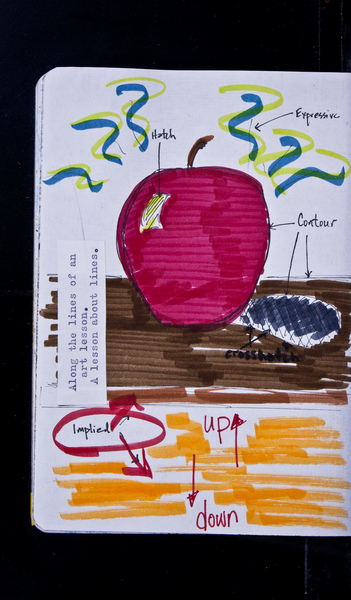 Expressive
Hatch
Contour
Along the lines of an
art lesson.
A lesson about lines.
crosshatch
Implied
up
down